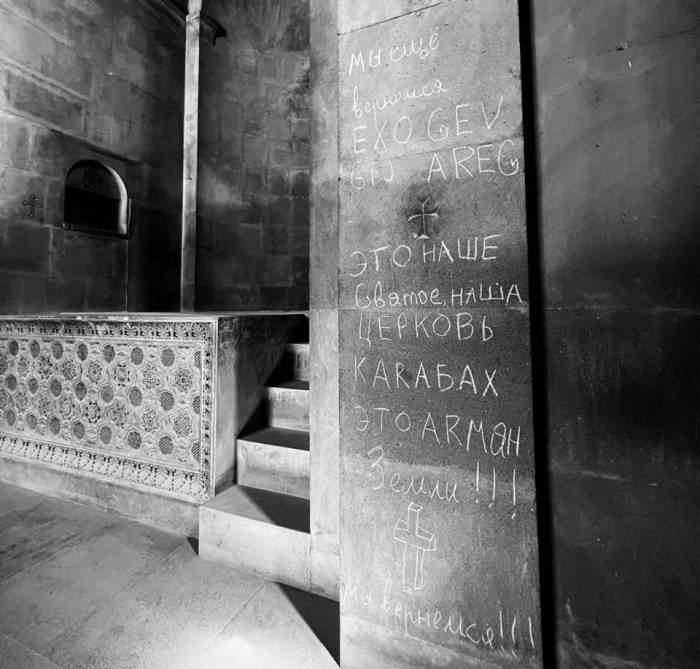 мы ещё
вернемся
EXO GEV
GIJ AREG
ЭТО НАШЕ
Сватое, НАША
ЦЕРКОВЬ
КАRАБАХ
ЭТО АRМАН
Земли!!!
мы вернемся!!!